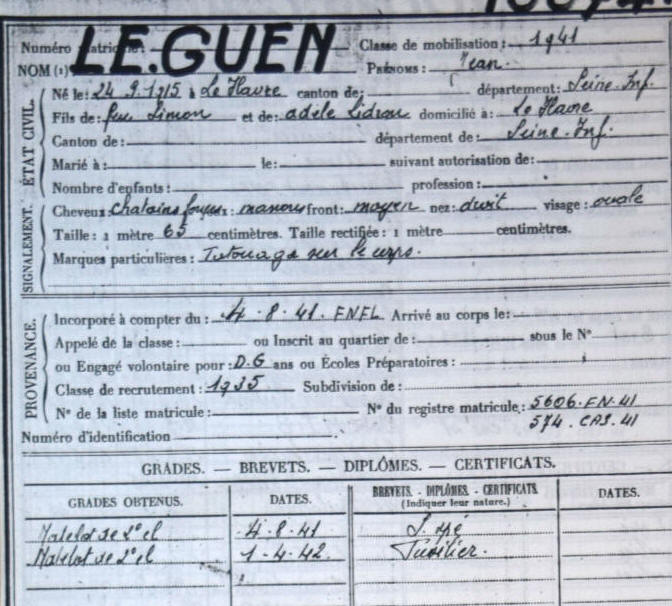 Numéro matricule :
Classe de mobilisation : 1941
NOM (1) LE.GUEN PRÉNOMS : Jean.
ÉTAT CIVIL.
Né le : 24.9.1915 à Le Havre canton de : département : Seine. Inf.
Fils de : feu Simon et de : adèle domicilié à : Le Havre
Canton de : département de : Seine. Inf.
Marié à : le : suivant autorisation de :
Nombre d'enfants : profession :
SIGNALEMENT.
Cheveux : chatains : front : moyen nez : visage : ovale
Taille : 1 mètre 65 centimètres. Taille rectifiée : 1 mètre centimètres.
Marques particulières : Tatouage sur le corps.
PROVENANCE.
Incorporé à compter du : 4.8.41. FNFL Arrivé au corps le :
Appelé de la classe : ou Inscrit au quartier de : sous le N°
ou Engagé volontaire pour : D.G ans ou Écoles Préparatoires :
Classe de recrutement : 1935 Subdivision de :
N° de la liste matricule : N° du registre matricule : 5606.FN.41
574.CAS.41
Numéro d'identification
GRADES. — BREVETS. — DIPLÔMES. — CERTIFICATS.
GRADES OBTENUS. DATES. BREVETS. - DIPLÔMES. - CERTIFICATS DATES.
(Indiquer leur nature.)
Matelot de 2e cl 4.8.41 S. spé
Matelot de 2e cl 1.4.42 Fusilier.